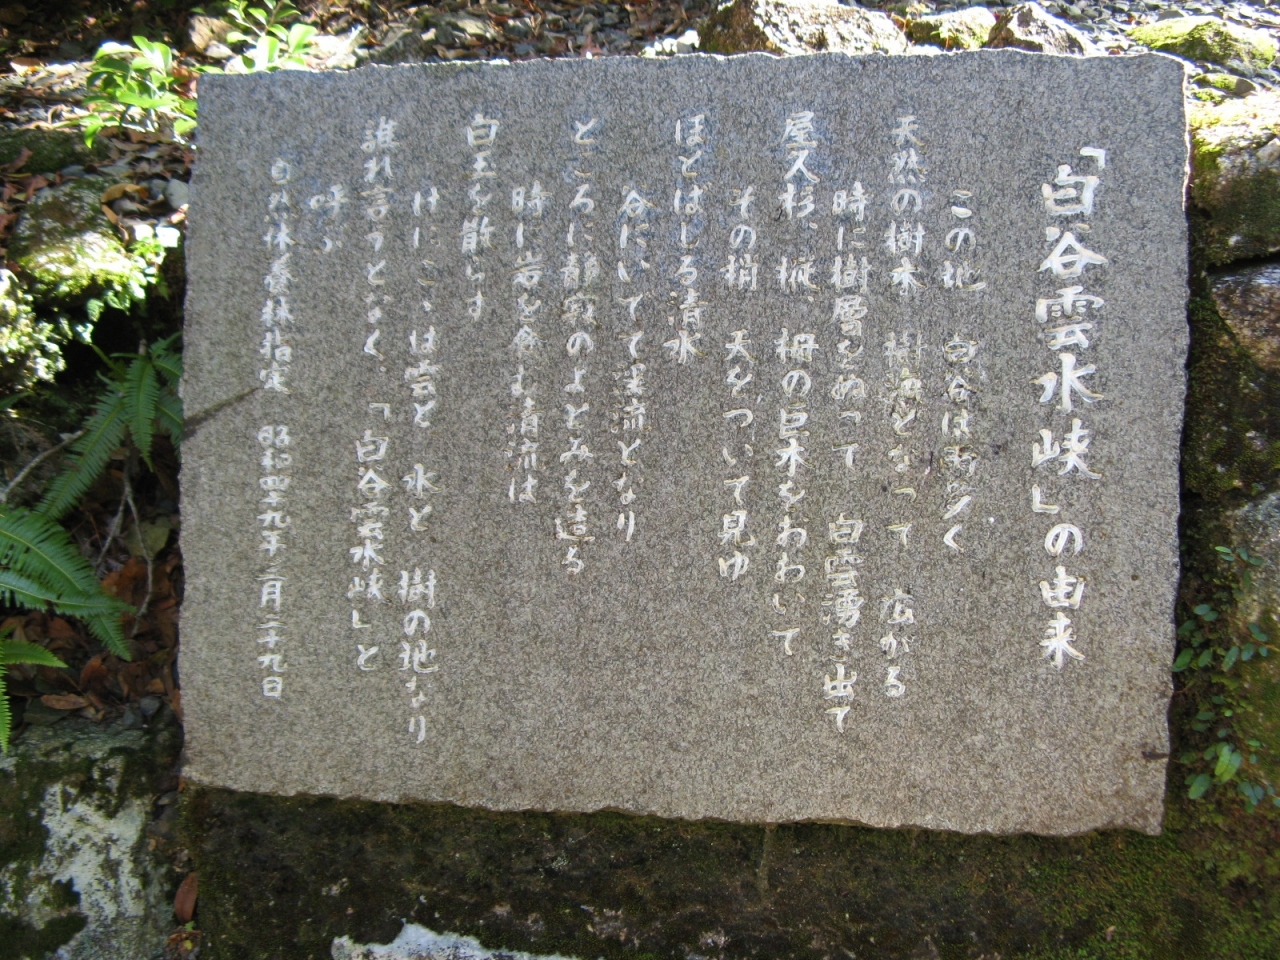 「白谷雲水峡」の由来
この地 白谷は町歩く
天然の樹木 樹海となって 広がる
時に樹層をぬって 白雲湧き出て
屋久杉、樅、栂の巨木をわわいて
その梢 天をついて見ゆ
ほとばしる清水
谷にいでて渓流となり
ところに静寂のよどみを造る
時に岩を食む清流は
白玉を散らす
けにこゝは雲と 水と 樹の地なり
誰れ言うとなく、「白谷雲水峡」と
呼ぶ
自然休養林指定 昭和四十九年三月二十九日